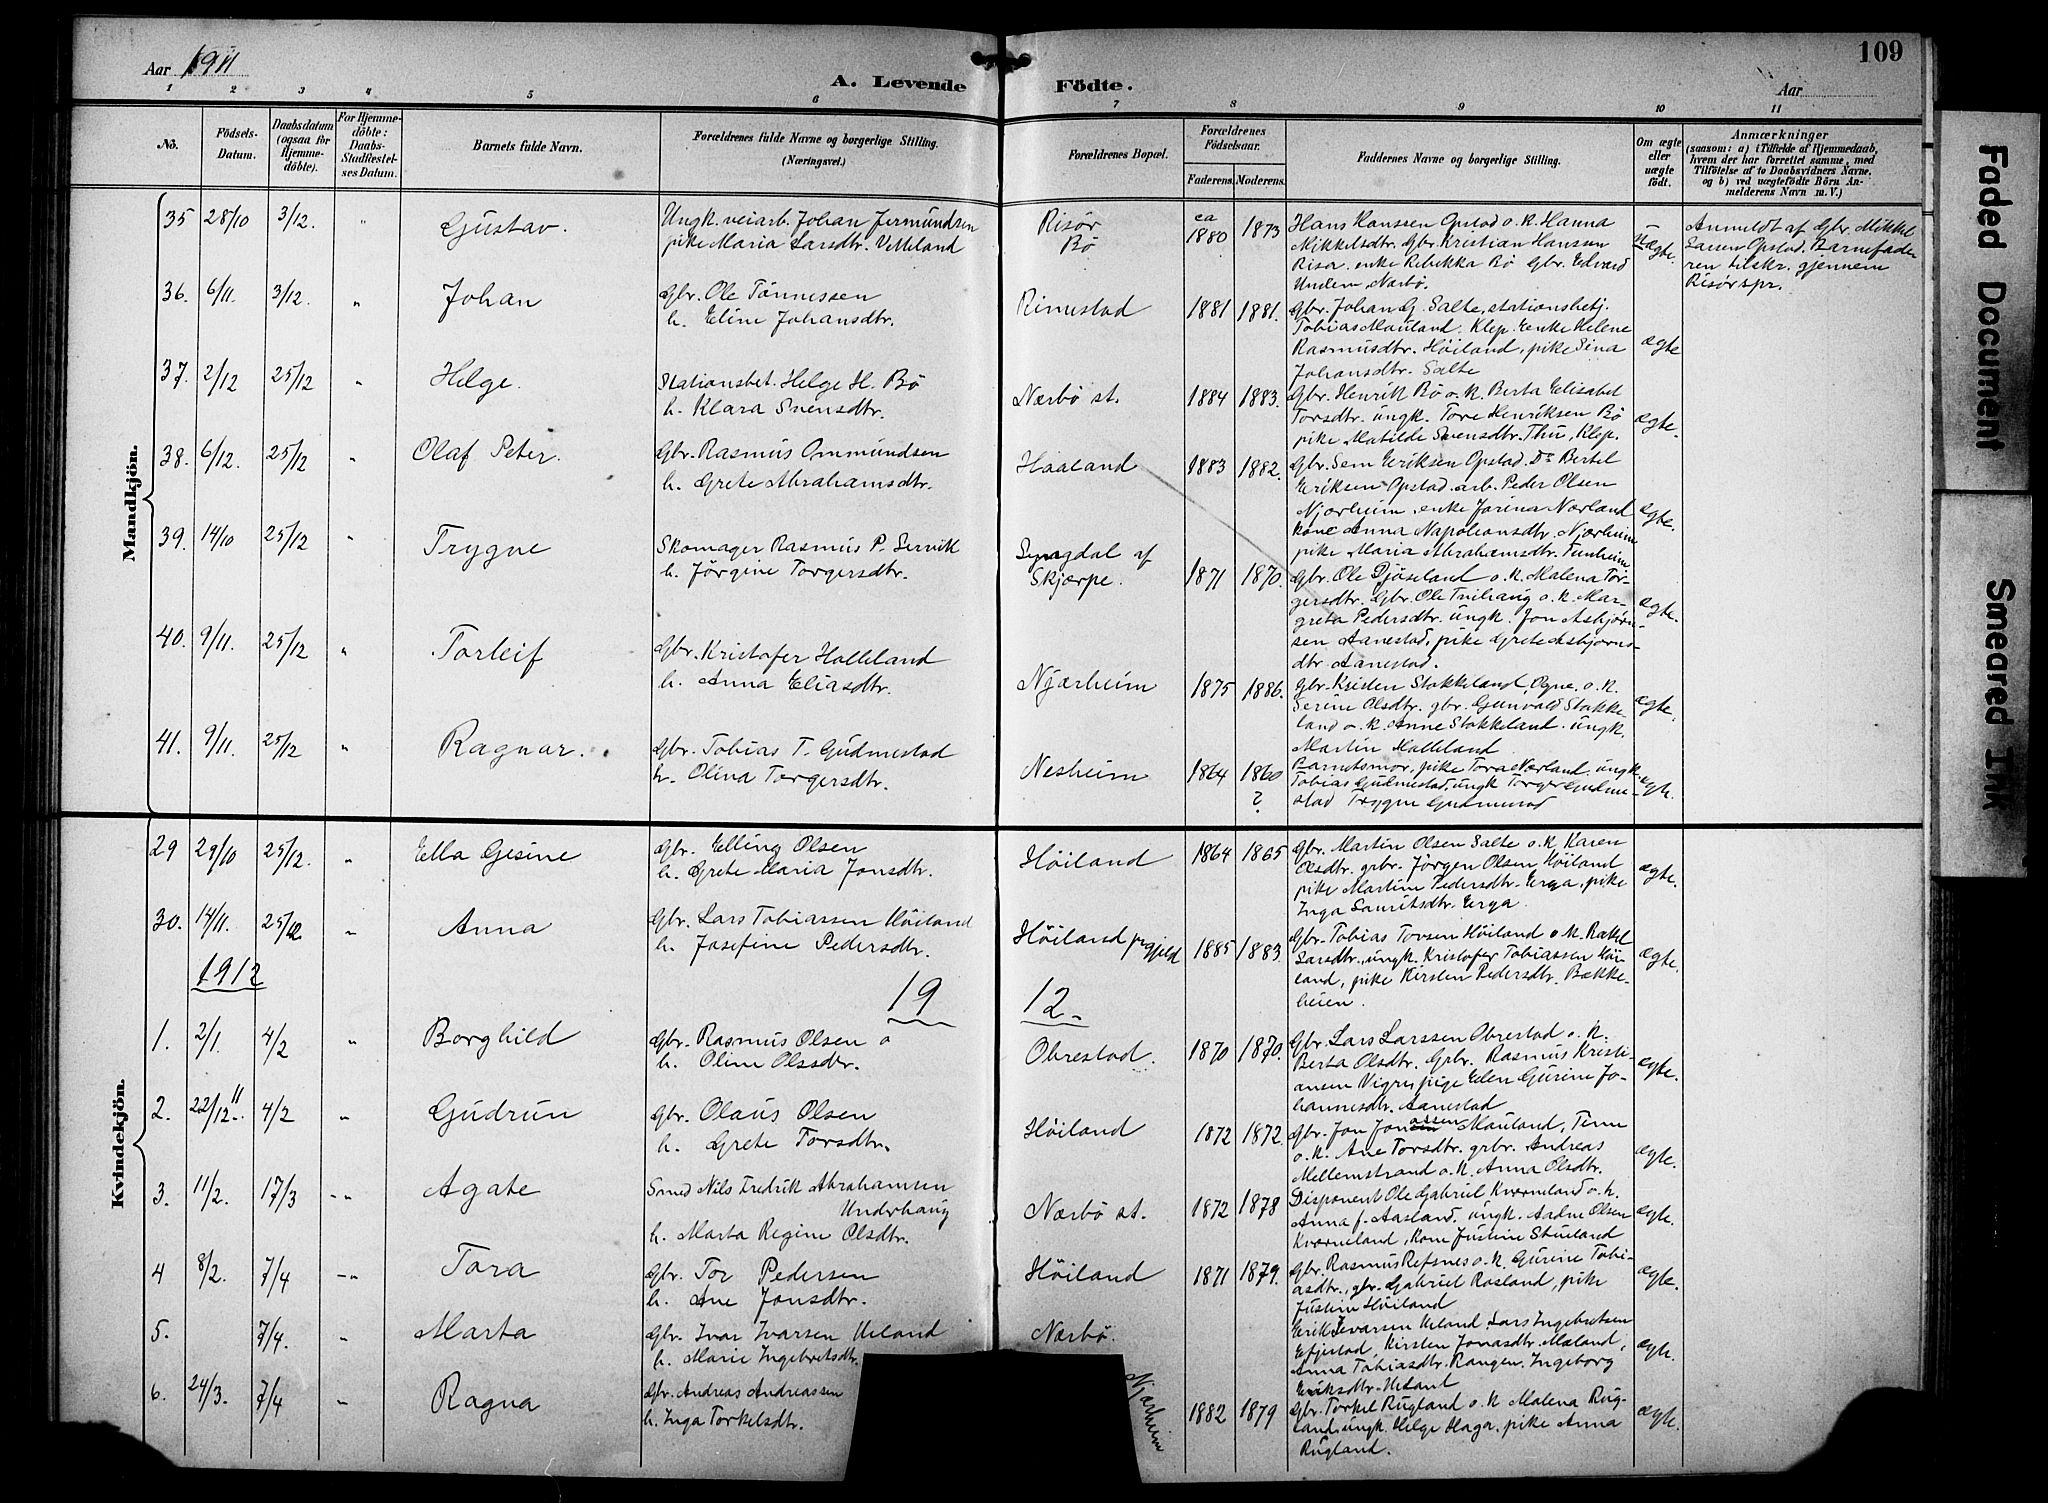 109
Aar 1911
A. Levende Födte.
Aar
1 2 3 4 5 6 7 8 9 10 11
No.
Födsels-Datum.
Daabsdatum (ogsaa for Hjemme-döbte).
For Hjemme-döbte: Daabs-Stadfestel-ses Datum.
Barnets fulde Navn.
Forældrenes fulde Navne og borgerlige Stilling.
(Næringsvei.)
Forældrenes Bopæl.
Forældrenes Födselsaar.
Faderens. Moderens.
Faddernes Navne og borgerlige Stilling.
Om ægte eller uægte födt.
Anmærkninger
(saasom: a) i Tilfælde af Hjemmedaab,
hvem der har forrettet samme, med
Tilföielse af to Daabsvidners Navne,
og b) ved uægtefödte Börn An-
melderens Navn m. V.)
Mandkjön.
35 28/10 3/12. " Gustav. Ungk. veiarb. Johan Jermundsen
pike Maria Larsdtr. Vetteland
Risør
Bö
ca 1880 1873
Hans Hanssen Opstad o. k. Hanna
Mikkelsdtr. Gbr. Kristian Hanssen
Risa. enke Rebekka Bö Gbr. Edvard
Undem, Nærbö.
Uægte.
Anmeldt af Gbr. Mikkel
Larsen Opstad. Barnefade
ren tilskr. gjennem
Risörspr.
36. 6/11. 3/12. " Johan Gbr. Ole Tönnessen
h. Eline Johansdtr.
Rimestad 1881 1881.
Gbr. Johan G. Salte, stationsbetj.
Tobias Mauland. Klep. Enke Helene
Rasmusdtr. Höiland, pike Sina
Johansdtr. Salte
ægte
37. 2/12 25/12 " Helge. Stationsbet. Helge H. Bö
h. Klara Svensdtr.
Nærbö st. 1884 1883.
Gbr. Henrik Bö o. k. Berta Elisabet
Torsdtr. ungk. Tore Henriksen Bö
pike Matilde Svensdtr. Thu, Klep.
ægte.
38. 6/12. 25/12 " Olaf Peter. Gbr. Rasmus Ommundsen
h. Grete Abrahamsdtr.
Haaland 1883 1882.
Gbr. Sem Eriksen Opstad. Do Bertel
Eriksen Opstad. arb. Peder Olsen
Njærheim, enke Jorina Nærland
kone Anna Napoleonsdtr. Njærheim
pike Maria Abrahamsdtr. Tunheim
ægte.
39. 14/10 25/12 " Trygve Skomager Rasmus P. Servik
h. Jörgine Torgersdtr.
Lyngdal af
Skjærpe.
1871 1870.
Gbr. Ole Djöseland o. k. Malena Tor-
gersdtr. Gbr. Ole Tvihaug o. k. Mar-
greta Pedersdtr. ungk. Jon Asbjörn-
sen Aanestad, pike Grete Asbjörns-
dtr Aanestad.
ægte.
40. 9/11. 25/12 " Torleif Gbr. Kristofer Holleland
h. Anna Eliasdtr.
Njærheim 1875 1886.
Gbr. Kristen Stokkeland, Ogne. o. k.
Serine Olsdtr. gbr. Gunvald Stokke-
land o. k. Anne Stokkeland. ungk.
Martin Holleland
ægte.
41. 9/11. 25/12 " Ragnar. Gbr. Tobias T. Gudmestad
h. Olina Torgersdtr.
Nesheim 1864 1860
?
Barnetsmor, pike Tora Nærland. ungk.
Tobias Gudmestad, ungk Torger Gudme-
stad Trygve Gudmestad
ægte.
Kvindekjön.
29 29/10 25/12. " Ella Gesine Gbr. Elling Olsen
h. Grete Maria Jonsdtr.
Höiland 1864 1865
Gbr. Martin Olsen Salte o. k Karen
Olsdtr. grbr. Jörgen Olsen Höiland
pike Martine Pedersdtr. Erga, pike
Inga Lauritsdtr. Erga.
ægte.
30. 14/11. 25/12. " Anna Gbr. Lars Tobiassen Höiland
h. Josefine Pedersdtr.
Höiland prgjeld 1885 1883.
Gbr. Tobias Tovsen Höiland o. k. Rakel
Larsdtr., ungk. Kristofer Tobiassen Höi-
land, pike Kirsten Pedersdtr. Bakke-
heien.
ægte.
1912 19 12.
1. 2/1. 4/2 " Borghild Gbr. Rasmus Olsen
h. Oline Olsdtr.
Obrestad. 1870 1870.
Gbr. Lars Larssen Obrestad o. k.
Berta Olsdtr. Grbr. Rasmus Kristi-
ansen Vigre, pige Elen Gurine Jo-
hannesdtr. Aanestad
ægte.
2. 22/12 11. 4/2 " Gudrun Gbr. Olaus Olsen
h. Grete Torsdtr.
Höiland 1872 1872.
Gbr. Jon Jonassen Mauland, Time
o. k. Ane Torsdtr. grbr. Andreas
Mellemstrand o. k. Anna Olsdtr.
ægte.
3. 11/2. 17/3 - " Agate Smed Nils Fredrik Abrahamsen
Underhaug
h. Marta Regine Olsdtr.
Nærbö st. 1872 1878
Disponent Ole Gabriel Kverneland o. h.
Anna f. Aasland. ungk. Aadne Olsen
Kverneland, kone Justine Stuland
ægte.
4 8/2. 7/4 - " Tora Gbr. Tor Pedersen
h. Ane Jonsdtr.
Höiland 1871 1879.
Gbr. Rasmus Refsnes o. k. Gurine Tobi-
asdtr., gbr. Gabriel Rosland, pike
Justine Höiland
ægte.
5. 7/4. " Marta Gbr. Ivar Ivarsen Ueland
h. Marie Ingebretsdtr.
Nærbö.
Erik Ivarsen Ueland, Lars Ingebretsen
Efjestad, Kirsten Jonasdtr. Maland,
Anna Tobiasdtr. Rangen. Ingeborg
Eriksdtr. Ueland
ægte.
6. 24/3. 7/4 " Ragna Gbr. Andreas Andreassen
h. Inga Torkelsdtr.
Njærheim 1882 1879
Gbr. Torkel Rugland o. k Malena Rug-
land, ungk. Helge Haga, pike Anna
Rugland.
ægte.
Faded Document
Smeared Ink